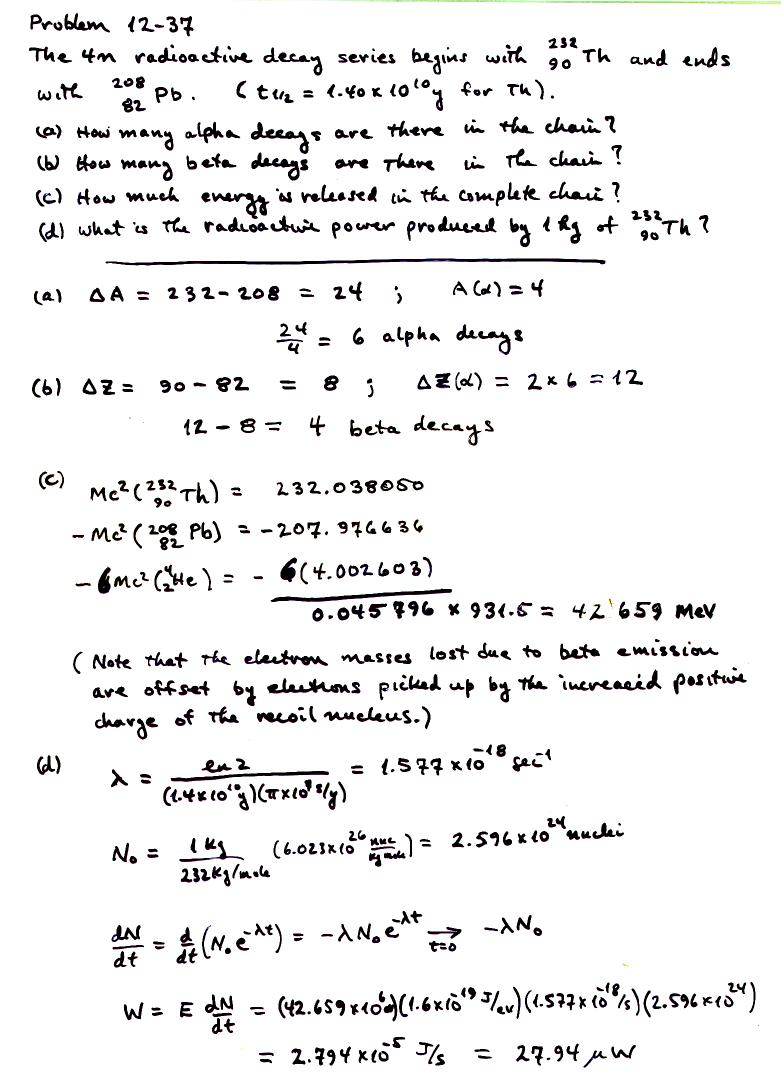 Problem 12-37
The 4n radioactive decay series begins with ²³²₉₀Th and ends
with ²⁰⁸₈₂Pb. (t₁/₂ = 1.40 x 10¹⁰y for Th).
(a) How many alpha decays are there in the chain?
(b) How many beta decays are there in the chain?
(c) How much energy is released in the complete chain?
(d) what is the radioactive power produced by 1 kg of ²³²₉₀Th?
(a) ΔA = 232-208 = 24 ; A(α) = 4
24/4 = 6 alpha decays
(b) ΔZ = 90-82 = 8 ; ΔZ(α) = 2 x 6 = 12
12 - 8 = 4 beta decays
(c) Mc²(²³²₉₀Th) = 232.038050
- Mc²(²⁰⁸₈₂Pb) = -207.976636
- 6Mc²(⁴₂He) = - 6(4.002603)
0.045796 x 931.5 = 42.659 MeV
(Note that the electron masses lost due to beta emission
are offset by electrons picked up by the increased positive
charge of the recoil nucleus.)
(d) λ = ln 2 / (1.4x10¹⁰y)(πx10⁷ s/y) = 1.577 x 10⁻¹⁸ sec⁻¹
N₀ = 1 kg / 232 kg/mole (6.023x10²⁶ nuc/kg mole) = 2.596 x 10²⁴ nuclei
dN/dt = d/dt (N₀e^-λt) = -λN₀e^-λt → t=0 -λN₀
W = E dN/dt = (42.659x10⁶)(1.6x10⁻¹⁹ J/ev)(1.577x10⁻¹⁸/s)(2.596x10²⁴)
= 2.794 x 10⁻⁵ J/s = 27.94 μW